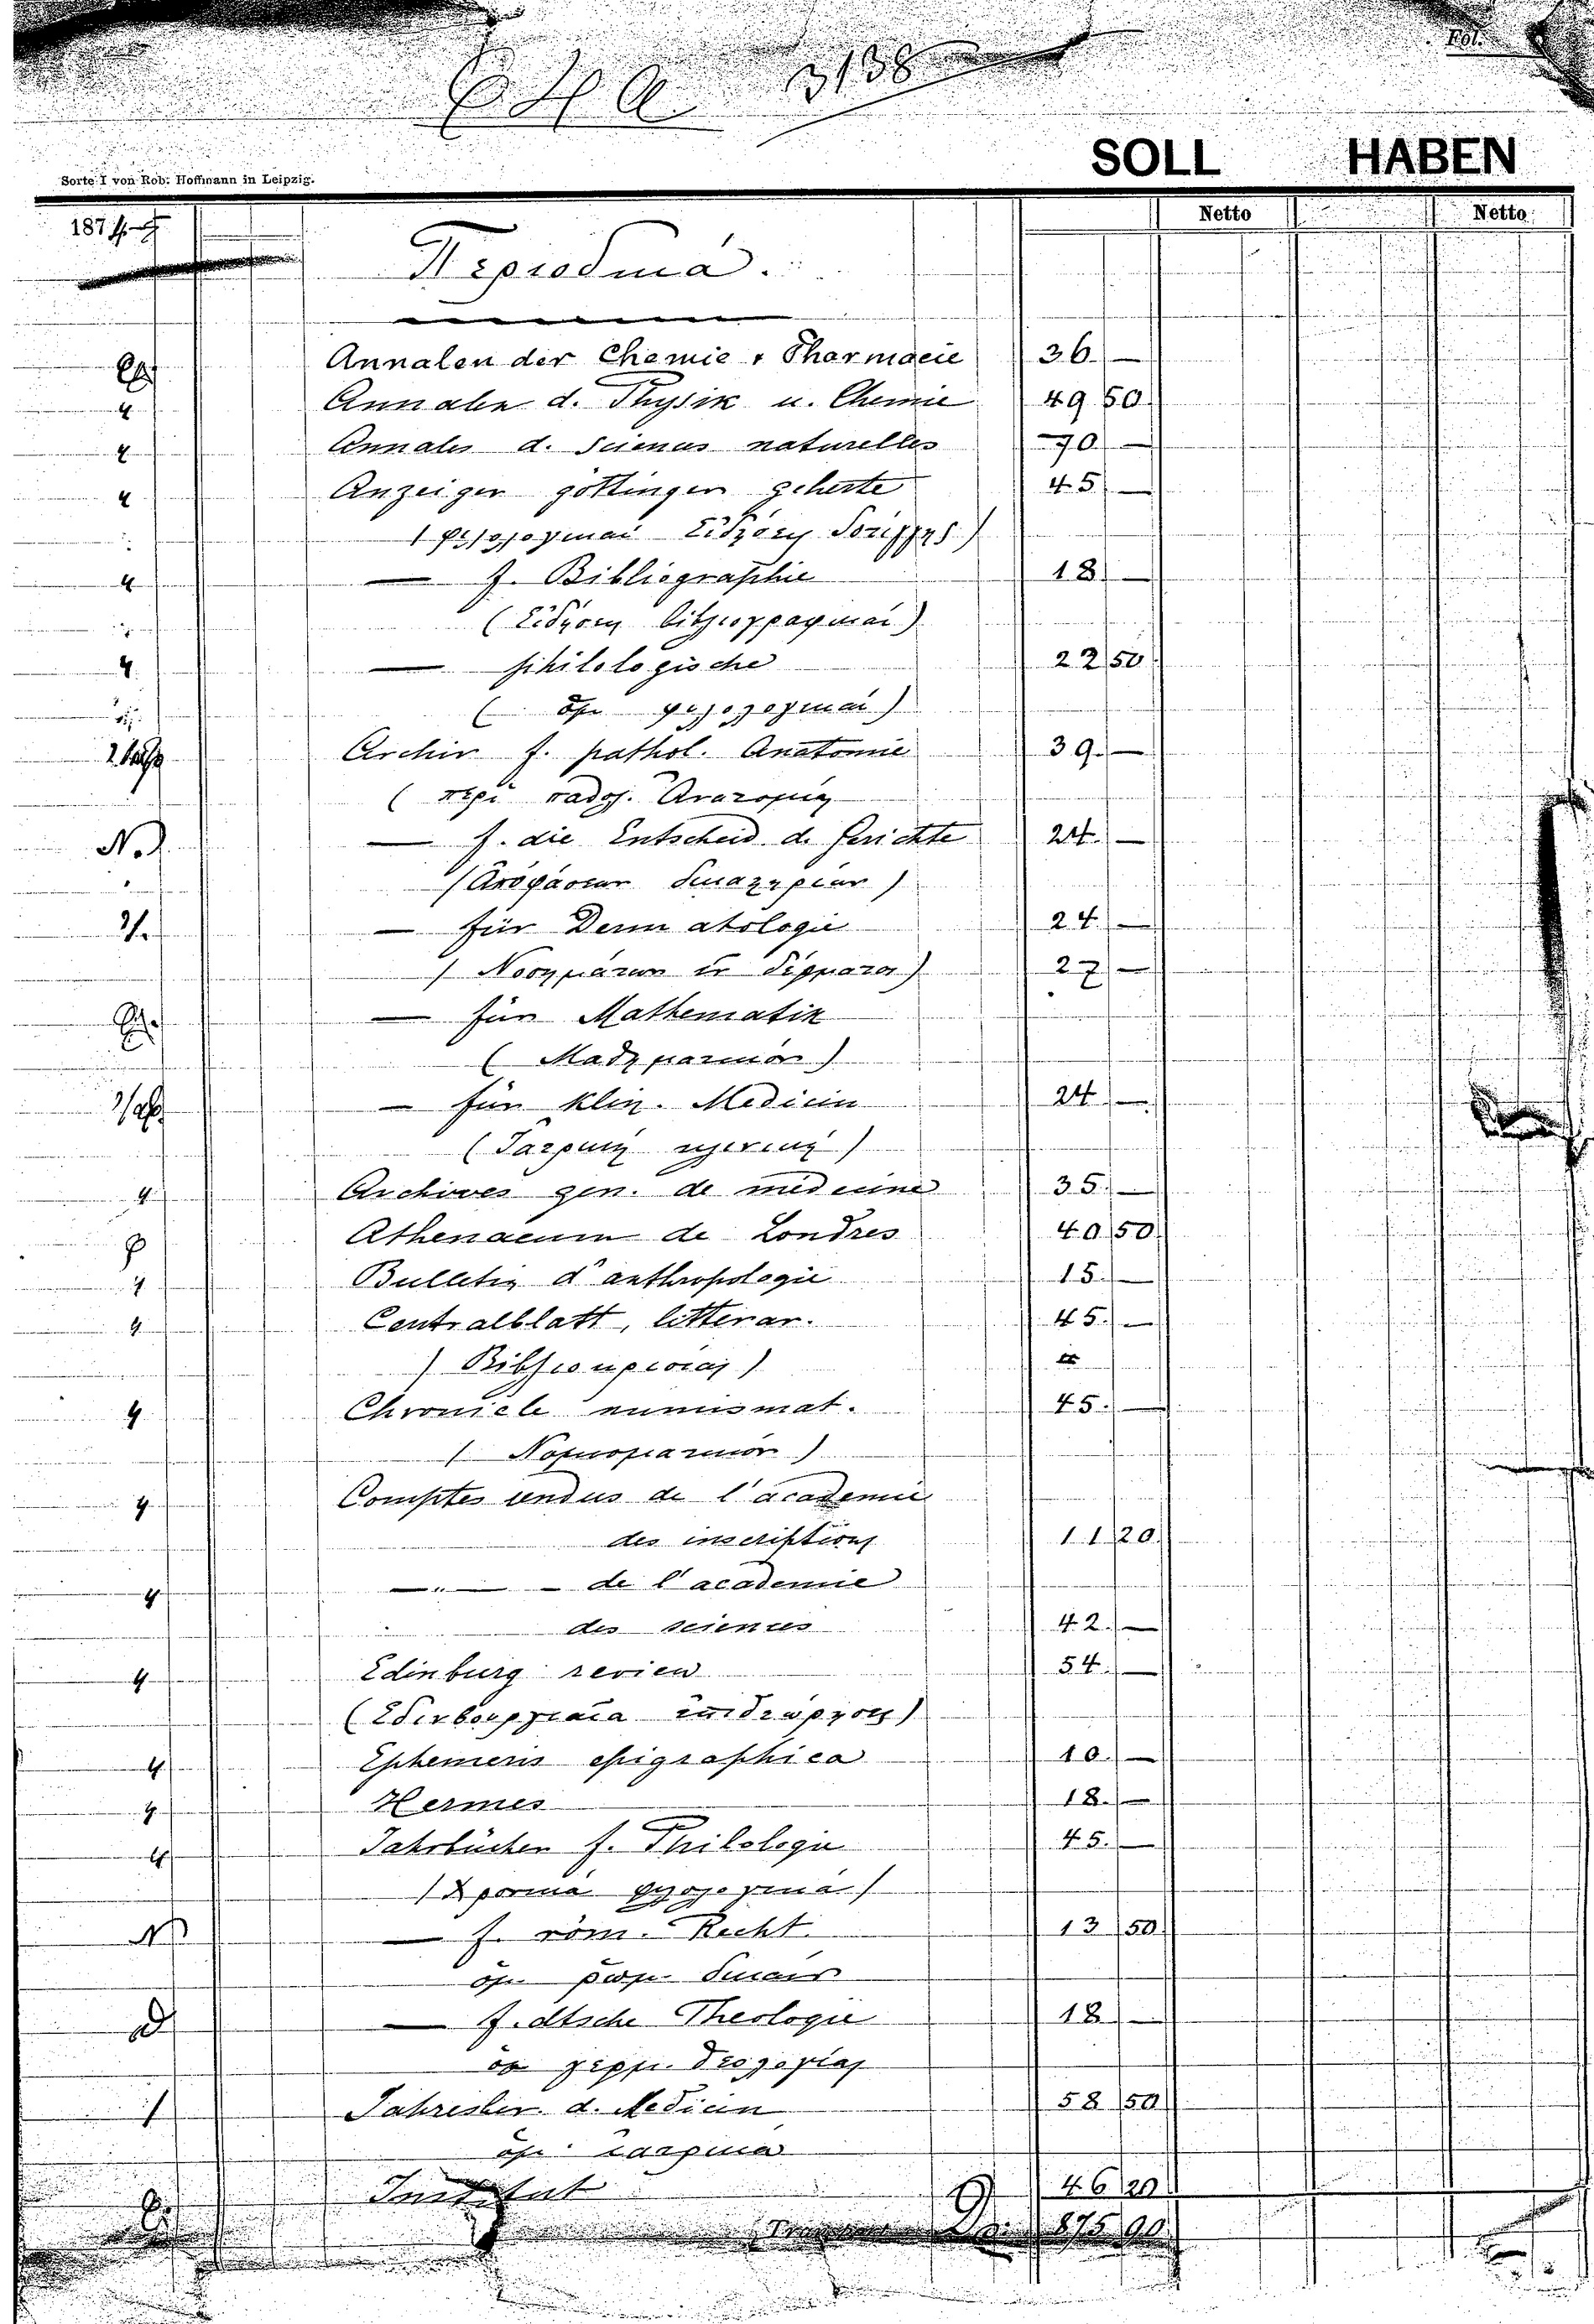 3138
Fol.
SOLL HABEN
Sorte I von Rob. Hoffmann in Leipzig.
Netto Netto
187
Περιοδικά.
Annalen der Chemie & Pharmacie 36 —
Annalen d. Physik u. Chemie 49 50
Annales d. sciences naturelles 70 —
Anzeiger göttingen gelherte 45 —
(φιλολογικαὶ Εἰδήσεις
— f. Bibliographie 18 —
(Εἰδήσεις βιβλιογραφικαί)
— philologische 22 50
( ὁμ φιλολογικαί)
Archiv f. pathol. Anatomie 39 —
(περὶ παθολ. Ανατομίας
— f. die Entscheid. d. Gerichte 24 —
(Αποφάσεων δικαστηρίων)
— für Dermatologie 24 —
(Νοσημάτων δέρματος) 27 —
— für Mathematik
(Μαθηματικόν)
— für klin. Medicin 24 —
(Ιατρικῆς κλινικῆς)
Archives gen. de médecine 35 —
Athenaeum de Londres 40 50
Bulletin d'anthropologie 15 —
Centralblatt, litterar. 45 —
(Βιβλιοκρισίας)
Chronicle numismat. 45 —
(Νομισματικόν)
Comptes rendus de l'académie
des inscriptions 11 20
—„— — de l'académie
des sciences 42 —
Edinburg review 54 —
(Εδινβουργιαία ἐπιθεώρησις)
Ephemeris epigraphica 10 —
Hermes 18 —
Jahrbücher f. Philologie 45 —
(Χρονικά φιλολογικά)
— f. röm. Recht 13 50
ὁμ ρωμ. δικαίου
— f. dtsche Theologie 18 —
ὁμ γερμ. θεολογίας
Jahresber. d. Medicin 58 50
ὁμ ιατρικά
Institut 46 20
875 90